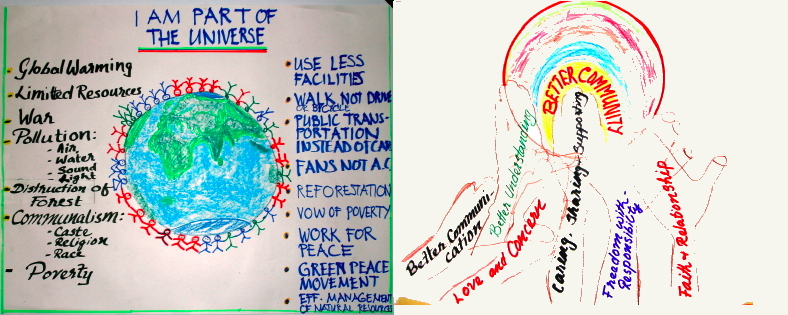 I AM PART OF
THE UNIVERSE
Global Warming
Limited Resources
War
Pollution:
- Air
- Water
- Sound
- Light
Distruction of
Forest
Communalism:
- Caste
- Religion
- Race
- Poverty
USE LESS
FACILITIES
WALK NOT DRIVE
OR BICYCLE
PUBLIC TRANS-
PORTATION
INSTEAD OF CAR
FANS NOT A.C
REFORESTATION
VOW OF POVERTY
WORK FOR
PEACE
GREEN PEACE
MOVEMENT
EFF. MANAGEMENT
OF NATURAL RESOURCES
BETTER COMMUNITY
Better Communi-
cation
Better Understanding
Love and Concern
Caring Sharing Supporting
Freedom with-
Responsibility
Faith & Relationship